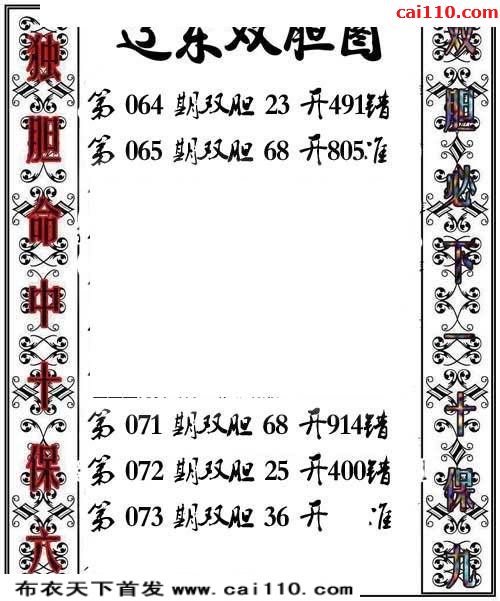 cai110.com
辽东双胆图
独胆命中十保六
双胆必下二十保九
第 064 期双胆 23 开491错
第 065 期双胆 68 开805准
第 071 期双胆 68 开914错
第 072 期双胆 25 开400错
第 073 期双胆 36 开 准
布衣天下首发 www.cai110.com